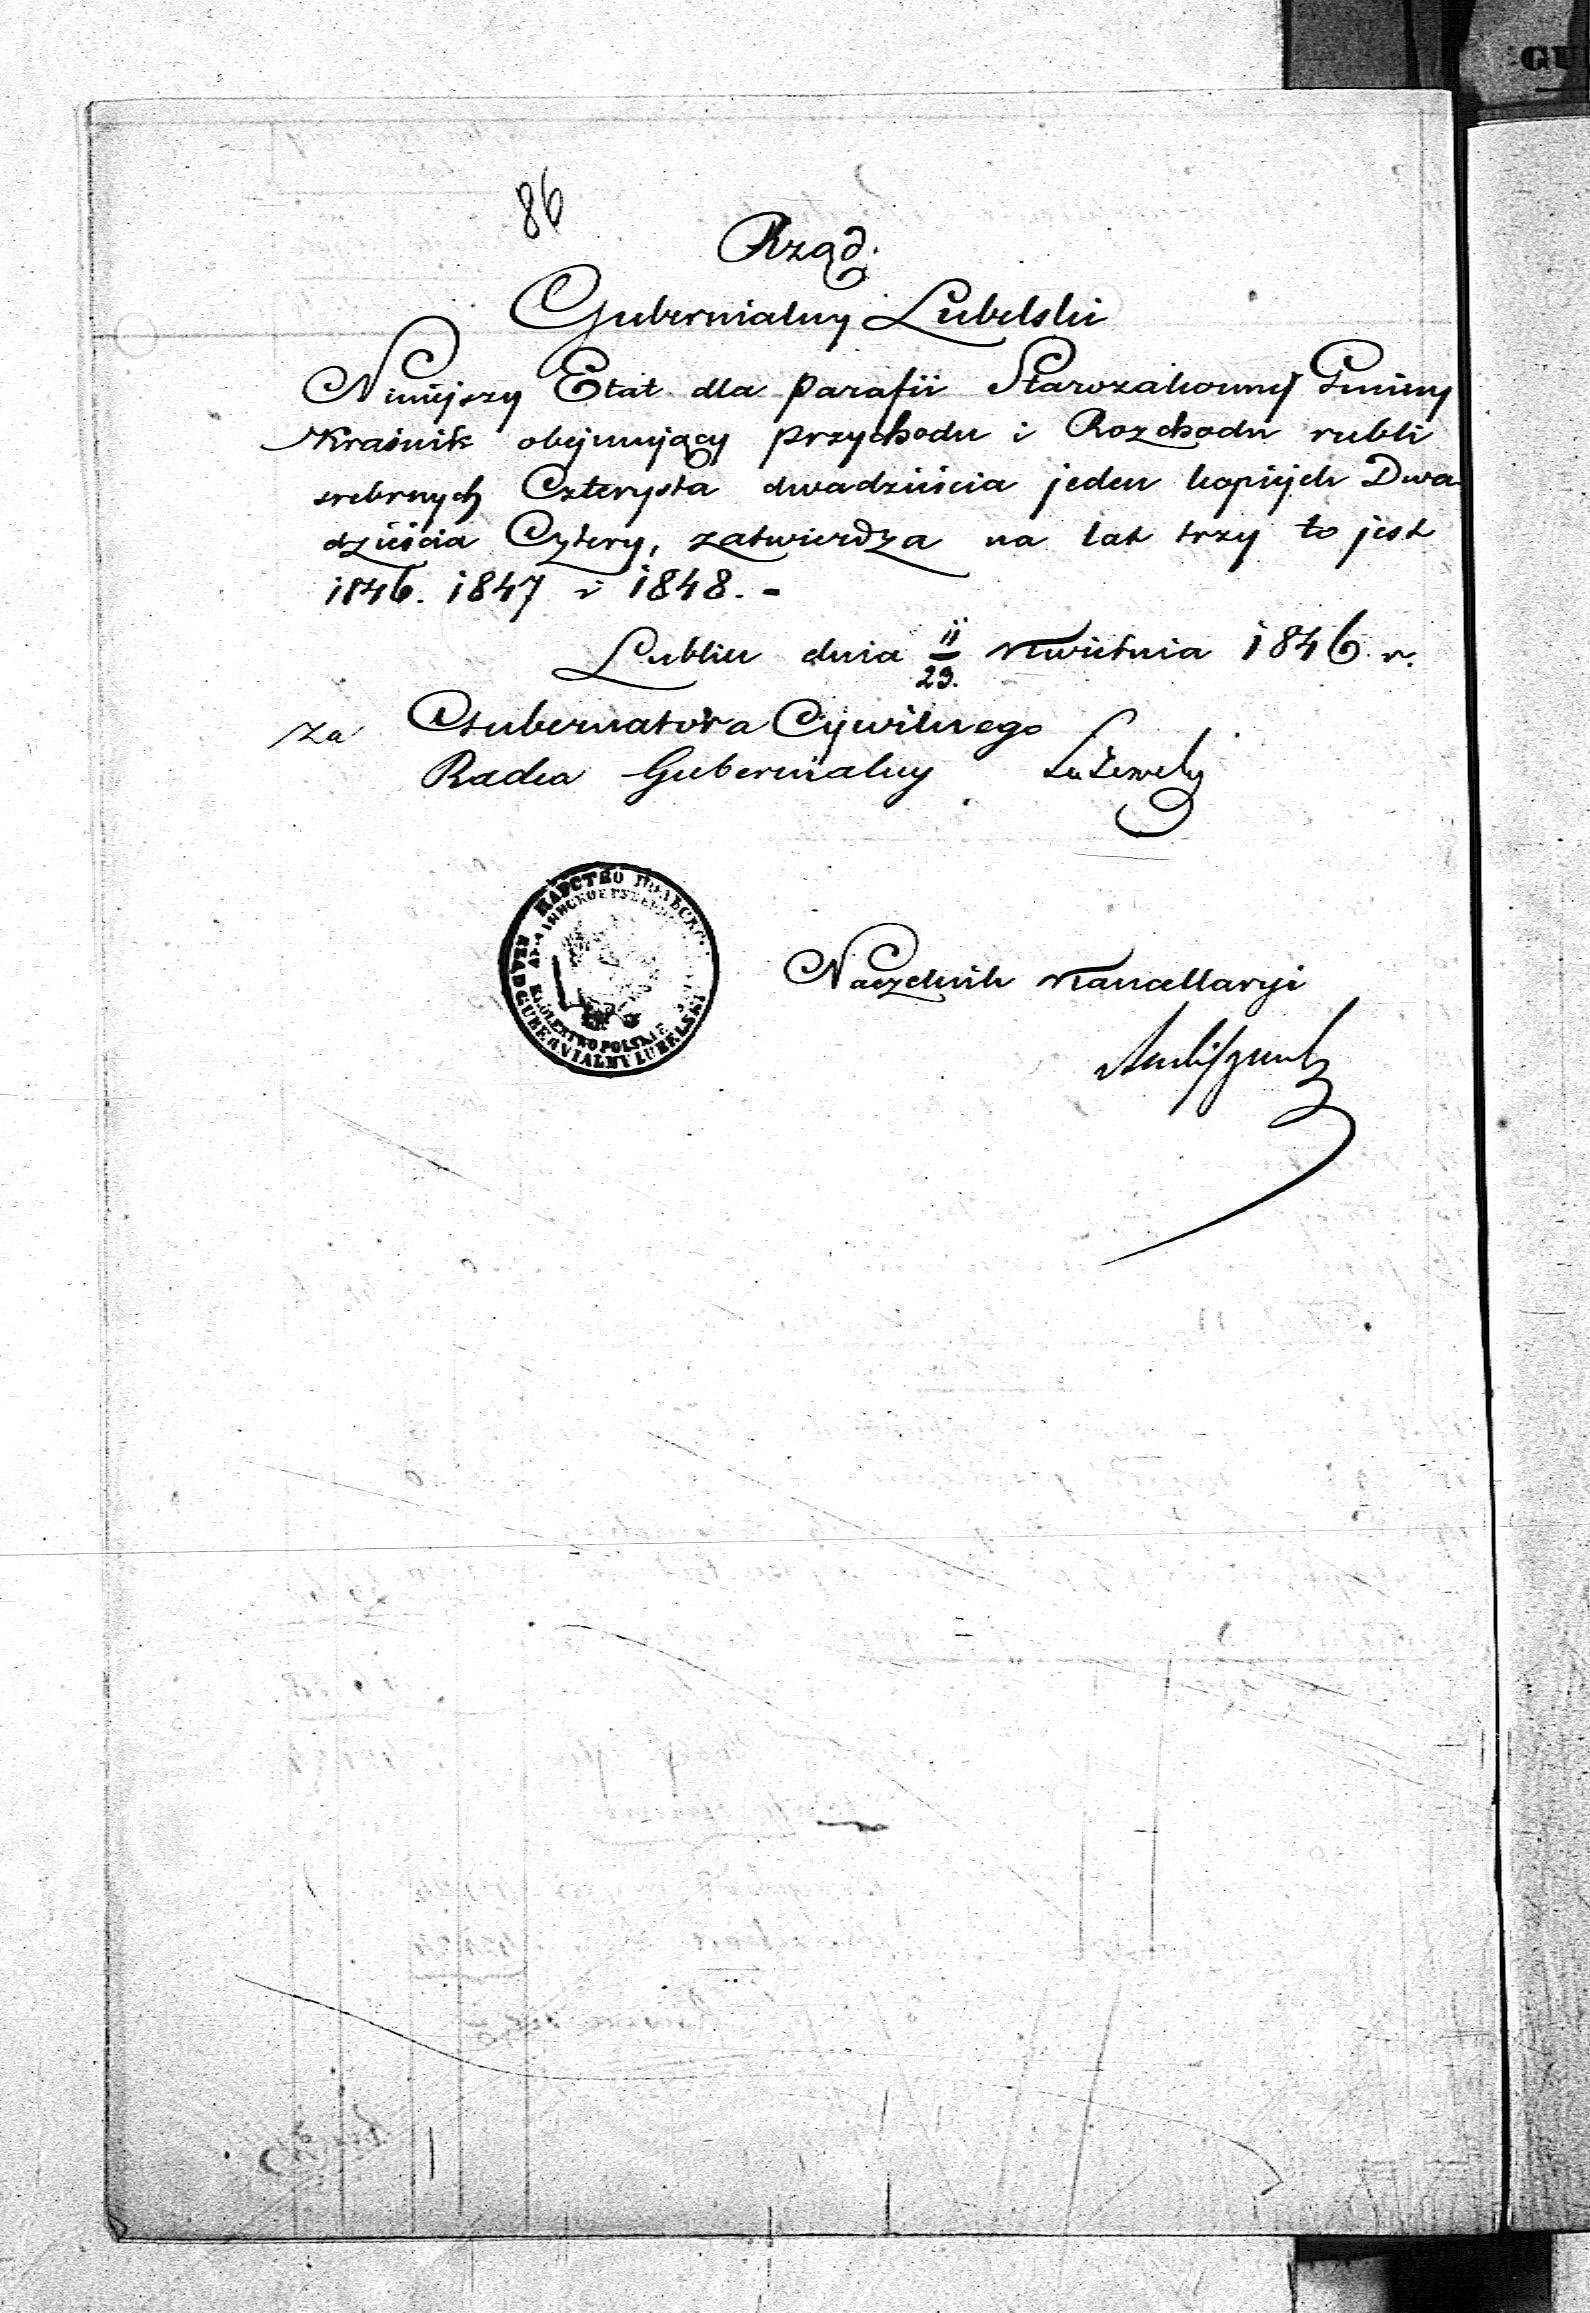 86
Rząd
Gubernialny Lubelski
Niniejszy Etat dla parafii Starozakonnej Gminy
Kraśnik obejmujący przychodu i Rozchodu rubli
srebrnych Czterysta dwadzieścia jeden kopiejek Dwa
dzieścia Cztery, zatwierdza na lat trzy to jest
1846. 1847 i 1848. -
Lublin dnia 11/23. Kwietnia 1846 r.
za Gubernatora Cywilnego
Radca Gubernialny
ЦАРСТВО ПОЛЬСКО
KRÓLESTWO POLSKIE
RZĄD GUBERNIALNY LUBELSKI
Naczelnik Kancellaryi
GU